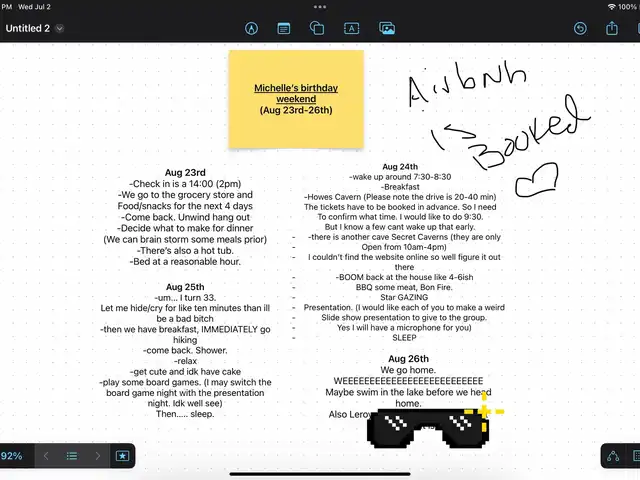 PM Wed Jul 2
100%
Untitled 2
Michelle's birthday
weekend
(Aug 23rd-26th)
Airbnb
is
Booked
Aug 23rd
-Check in is a 14:00 (2pm)
-We go to the grocery store and
Food/snacks for the next 4 days
-Come back. Unwind hang out
-Decide what to make for dinner
(We can brain storm some meals prior)
-There's also a hot tub.
-Bed at a reasonable hour.
Aug 24th
-wake up around 7:30-8:30
-Breakfast
-Howes Cavern (Please note the drive is 20-40 min)
The tickets have to be booked in advance. So I need
To confirm what time. I would like to do 9:30.
But I know a few cant wake up that early.
- -there is another cave Secret Caverns (they are only
- Open from 10am-4pm)
- I couldn't find the website online so well figure it out
there
- -BOOM back at the house like 4-6ish
- BBQ some meat, Bon Fire.
- Star GAZING
- Presentation. (I would like each of you to make a weird
- Slide show presentation to give to the group.
- Yes I will have a microphone for you)
- SLEEP
Aug 25th
-um... I turn 33.
Let me hide/cry for like ten minutes than ill
be a bad bitch
-then we have breakfast, IMMEDIATELY go
hiking
-come back. Shower.
-relax
-get cute and idk have cake
-play some board games. (I may switch the
board game night with the presentation
night. Idk well see)
Then..... sleep.
Aug 26th
We go home.
WEEEEEEEEEEEEEEEEEEEEEEEEEE
Maybe swim in the lake before we head
home.
Also
92%